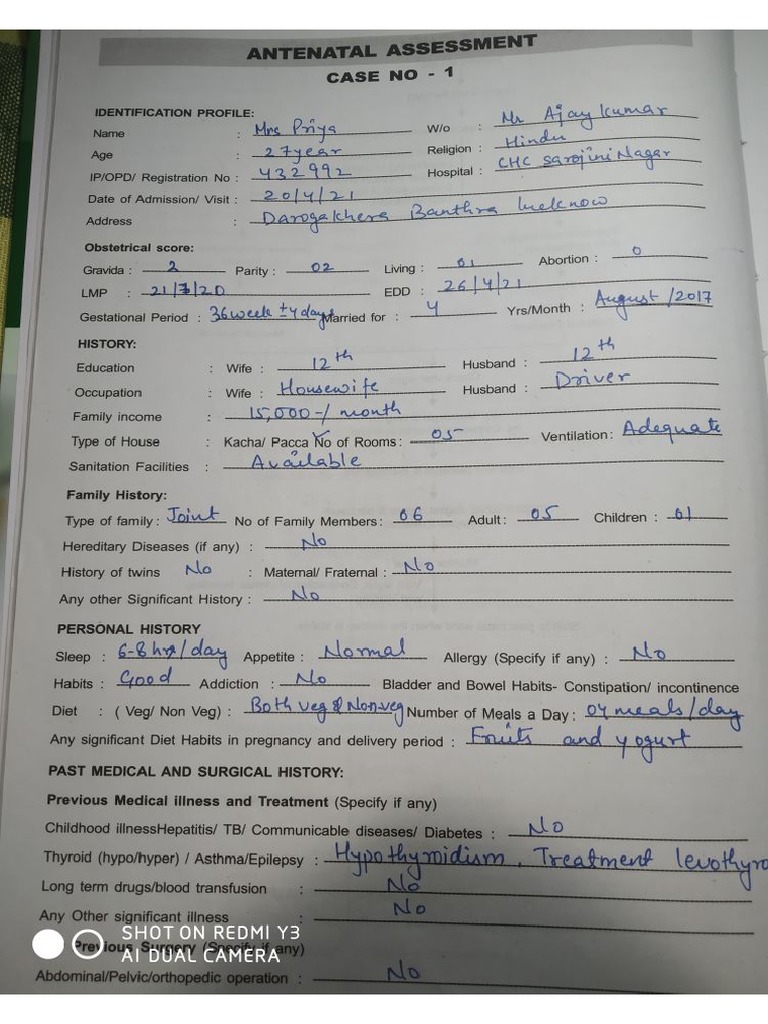 ANTENATAL ASSESSMENT
CASE NO - 1
IDENTIFICATION PROFILE:
Name : Mrs Priya W/o : Mr Ajay kumar
Age : 27year Religion : Hindu
IP/OPD/ Registration No : 432992 Hospital : CHC Sarojini Nagar
Date of Admission/ Visit : 20/4/21
Address : Darogakhera Banthra lucknow
Obstetrical score:
Gravida : 2 Parity : 02 Living : 01 Abortion : 0
LMP : 21/7/20 EDD : 26/4/21
Gestational Period : 36week ±4days Married for : 4 Yrs/Month : August/2017
HISTORY:
Education : Wife : 12th Husband : 12th
Occupation : Wife : Housewife Husband : Driver
Family income : 15,000-/ month
Type of House : Kacha/ Pacca ✓ No of Rooms : 05 Ventilation : Adequate
Sanitation Facilities : Available
Family History:
Type of family : Joint No of Family Members : 06 Adult : 05 Children : 01
Hereditary Diseases (if any) : No
History of twins No : Maternal/ Fraternal : No
Any other Significant History : No
PERSONAL HISTORY
Sleep : 6-8hrs/day Appetite : Normal Allergy (Specify if any) : No
Habits : Good Addiction : No Bladder and Bowel Habits- Constipation/ incontinence
Diet : ( Veg/ Non Veg) : Both veg & Nonveg Number of Meals a Day : 04 meals/day
Any significant Diet Habits in pregnancy and delivery period : Fruits and yogurt
PAST MEDICAL AND SURGICAL HISTORY:
Previous Medical illness and Treatment (Specify if any)
Childhood illnessHepatitis/ TB/ Communicable diseases/ Diabetes : No
Thyroid (hypo/hyper) / Asthma/Epilepsy : Hypothyroidism. Treatment levothyro
Long term drugs/blood transfusion : No
Any Other significant illness : No
Previous Surgery (Specify if any)
Abdominal/Pelvic/orthopedic operation : No
SHOT ON REDMI Y3
AI DUAL CAMERA